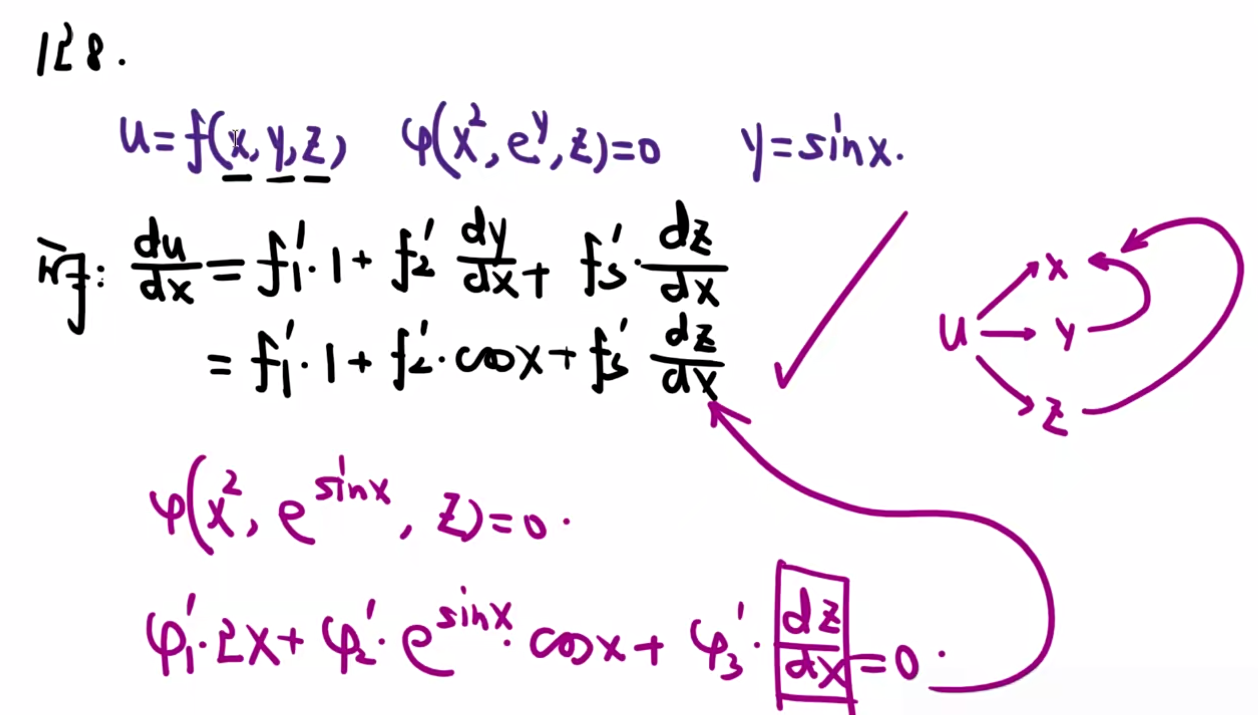 128.
u=f(x,y,z) φ(x²,e^y,z)=0 y=sinx.
du/dx=f₁'·1+f₂' dy/dx+f₃'·dz/dx
=f₁'·1+f₂'·cosx+f₃' dz/dx
u x y z
φ(x²,e^sinx,z)=0.
φ₁'·2x+φ₂'·e^sinx·cosx+φ₃'·dz/dx=0.